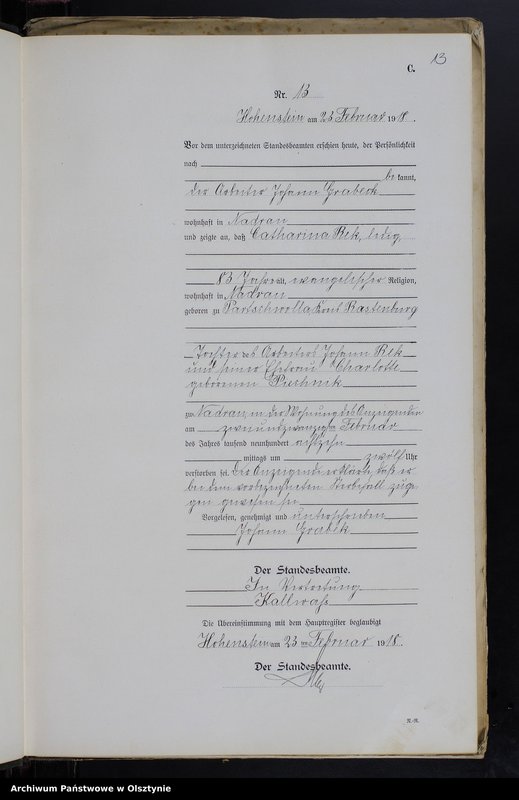 13
C.
Nr. 13
Hohenstein am 23 Februar 1918.
Vor dem unterzeichneten Standesbeamten erschien heute, der Persönlichkeit
nach
be kannt,
der Arbeiter Johann Grabeck
wohnhaft in Nadrau
und zeigte an, daß Catharina Rek, ledig
83 Jahre alt, evangelischer Religion,
wohnhaft in Nadrau
geboren zu Partschwolla, Kreis Rastenburg
Tochter des Arbeiters Johann Rek
und seiner Ehefrau Charlotte
geborenen Piechnik
zu Nadrau, in der Wohnung des Anzeigenden
am zweiundzwanzigten Februar
des Jahres tausend neunhundert achtzehn
mittags um zwölf Uhr
verstorben sei. Der Anzeigende erklärte, daß er
bei dem vorbezeichneten Sterbefall zuge-
gen gewesen sei
Vorgelesen, genehmigt und unterschrieben
Johann Grabek
Der Standesbeamte.
In Vertretung
Kallwaß
Die Übereinstimmung mit dem Hauptregister beglaubigt
Hohenstein am 23 ten Februar 1918.
Der Standesbeamte.
R.-R.
Archiwum Państwowe w Olsztynie